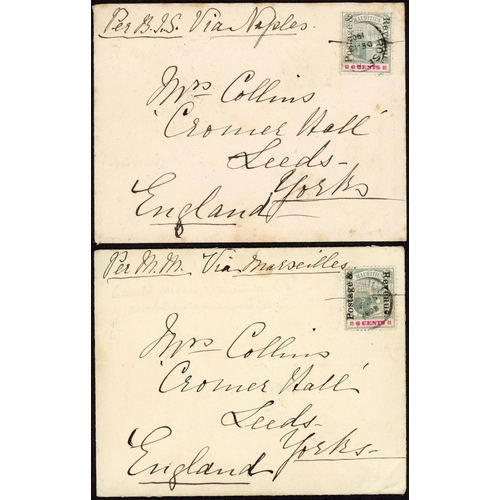 Per B.I.S. Via Naples.
MAURITIUS
Postage &
Revenue
6 CENTS
Mrs Collins
'Cromer Hall'
Leeds-
Yorks
England
Per M.M. Via Marseilles.
MAURITIUS
Postage &
Revenue
6 CENTS
Mrs Collins
'Cromer Hall'
Leeds-
Yorks-
England